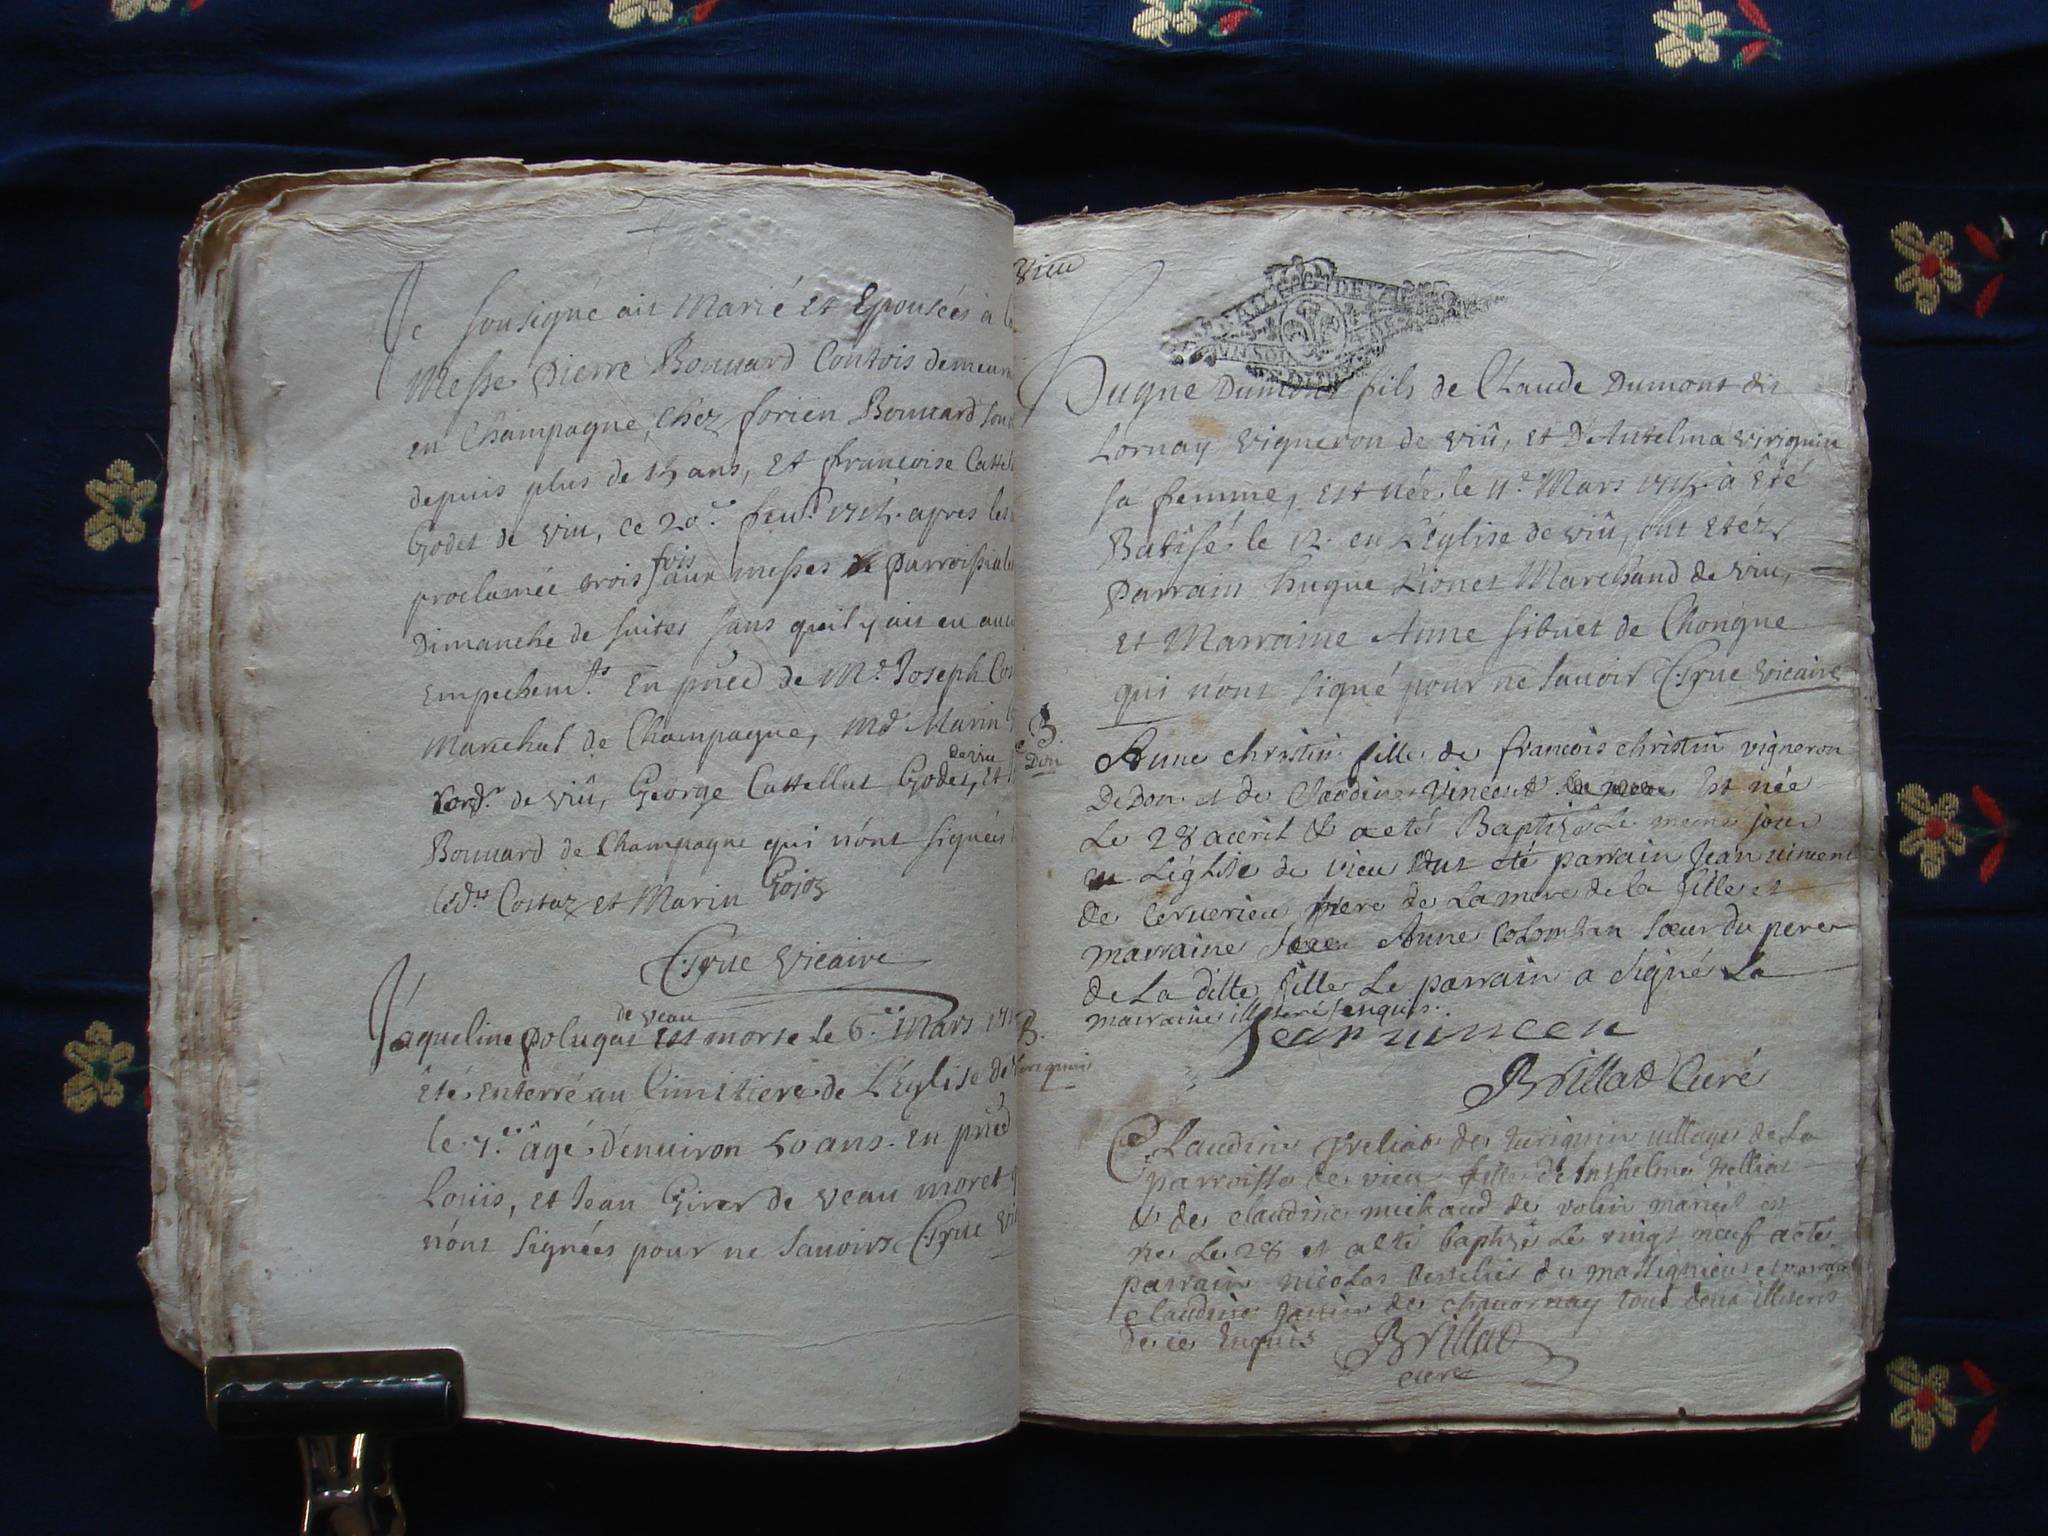 Je sousigné ait Marié et Epousées à la
Messe pierre Bouuard Contois demeura
en Champagne, chez forien Bouuard son
depuis plus de 15 ans, et francoise Castel
Godet de viu, ce 20.e feur. 1715. apres les
proclamée trois fois aux messes parroissiale
Dimanche de suites sans qu'il y ait eu aucu
Empechem.ts En pñce de Mr. Joseph Cos
Marechal de Champagne, Md. Marin
de viû, George Castellut Godet, de viu et
Bouuard de Champagne qui n'ont signées
Costaz et Marin Gojoz
vicaire
Jaqueline polugat de veau est morte le 6.e Mars 171
été enterré au Cimitiere de L'Eglise de
le 7.e âgé d'enuiron 50 ans. En pñce
Louis, et Jean Girer de veau moret
n'ont signées pour ne sauoir
vieu
Hugue Dumont fils de Claude Dumont dit
Lornay vigneron de viû, et D'Antelma virignin
sa femme, est née le 11.e Mars 1715. à Eté
Batisé le 12. en L'Eglise de viû, ont etéz
parrain hugue Lionet Marchand de viu,
et Marraine Anne sibuet de Chongne
qui n'ont signé pour ne sauoir vicaire
B.
Don
Anne christin fille de francois christin vigneron
De Don et de Claudine Vincent Est née
Le 28 aueril & a eté Baptizé Le meme jour
en L'église de vieu Ont été parrain Jean vincent
de Ceruerieu frere de La mere de la fille et
marraine Anne Colomban sœur du pere
de La ditte fille Le parrain a signé La
marraine illiteré Enquis.
Jean vincen
Brillat Curé
B.
Claudine de turignin uillage de La
parroisse de vieu fille de Anthelme
& de claudine michaud de volin
ne Le 28 et a eté baptizé Le vingt neuf a eté
parrain nicolas du Massignieu et marrai
claudine de chauornay tout deux illiterés
de ce Enquis Brillat
curé